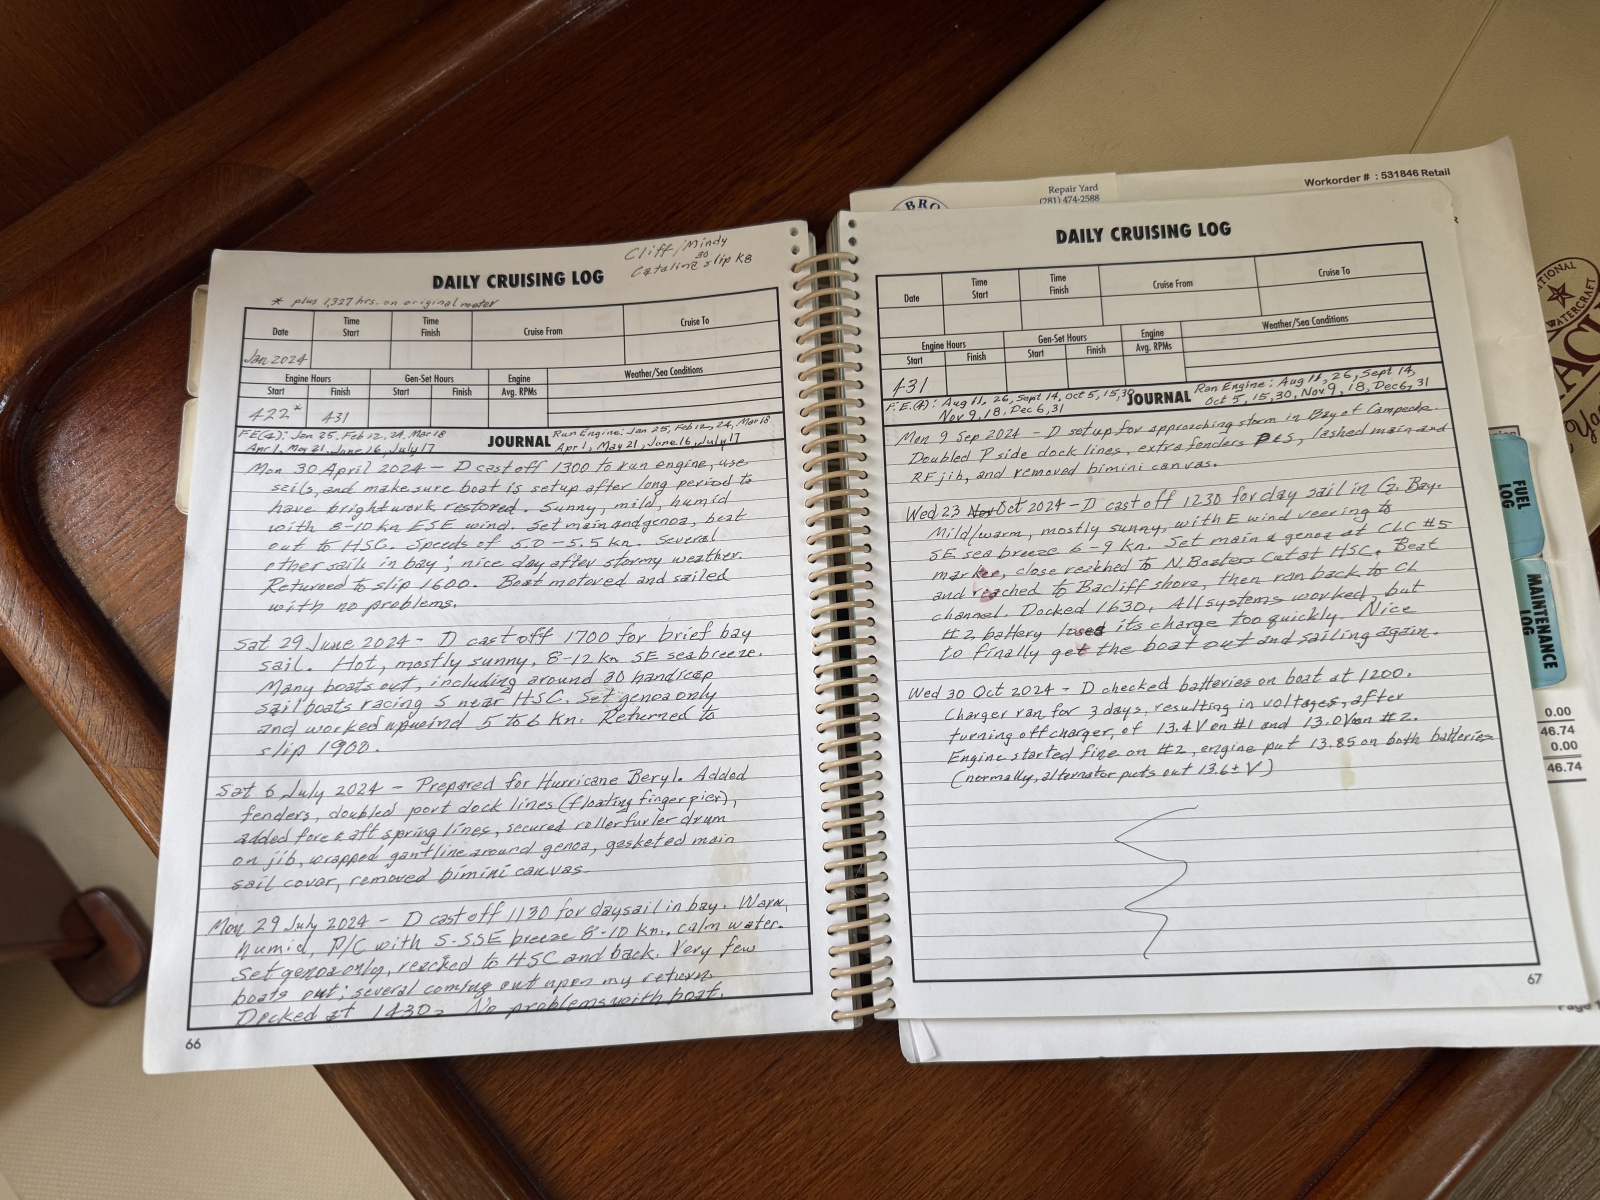 Cliff/Mindy
Catalina 30 slip K8
DAILY CRUISING LOG
* plus 1,327 hrs. on original meter
Date
Time Start
Time Finish
Cruise From
Cruise To
Jan 2024
Engine Hours
Gen-Set Hours
Engine Avg. RPMs
Weather/Sea Conditions
Start
Finish
Start
Finish
422*
431
FE(4): Jan 25, Feb 12, 24, Mar 18
Apr 1, May 21, June 16, July 17
JOURNAL
Run Engine: Jan 25, Feb 12, 24, Mar 18
Apr 1, May 21, June 16, July 17
Mon 30 April 2024 - D cast off 1300 to run engine, use
sails, and make sure boat is setup after long period to
have brightwork restored. Sunny, mild, humid
with 8-10 kn ESE wind. Set main and genoa, beat
out to HSC. Speeds of 5.0 - 5.5 kn. Several
other sails in bay; nice day after stormy weather.
Returned to slip 1600. Boat motored and sailed
with no problems.
Sat 29 June 2024 - D cast off 1700 for brief bay
sail. Hot, mostly sunny, 8-12 kn SE seabreeze.
Many boats out, including around 20 handicap
sailboats racing S near HSC. Set genoa only
and worked upwind 5 to 6 kn. Returned to
slip 1900.
Sat 6 July 2024 - Prepared for Hurricane Beryl. Added
fenders, doubled port dock lines (floating finger pier),
added fore & aft spring lines, secured roller furler drum
on jib, wrapped gantline around genoa, gasketed main
sail cover, removed bimini canvas.
Mon 29 July 2024 - D cast off 1130 for daysail in bay. Warm,
humid, P/C with S-SSE breeze 8-10 kn., calm water.
Set genoa only, reached to HSC and back. Very few
boats out; several coming out upon my return.
Docked at 1430. No problems with boat.
66
Repair Yard
(281) 474-2588
Workorder # : 531846 Retail
DAILY CRUISING LOG
Date
Time Start
Time Finish
Cruise From
Cruise To
Engine Hours
Gen-Set Hours
Engine Avg. RPMs
Weather/Sea Conditions
Start
Finish
Start
Finish
431
F.E.(4): Aug 11, 26, Sept 14, Oct 5, 15, 30
Nov 9, 18, Dec 6, 31
JOURNAL
Ran Engine: Aug 11, 26, Sept 14,
Oct 5, 15, 30, Nov 9, 18, Dec 6, 31
Mon 9 Sep 2024 - D setup for approaching storm in Bay of Campeche.
Doubled P side dock lines, extra fenders P&S, lashed main and
RF jib, and removed bimini canvas.
Wed 23 Nov Oct 2024 - D cast off 1230 for day sail in G. Bay.
Mild/warm, mostly sunny, with E wind veering to
SE sea breeze 6-9 kn. Set main & genoa at CLC #5
marker, close reached to N. Boaters Cut at HSC. Beat
and reached to Bacliff shore, then ran back to CL
channel. Docked 1630. All systems worked, but
#2 battery losed its charge too quickly. Nice
to finally get the boat out and sailing again.
Wed 30 Oct 2024 - D checked batteries on boat at 1200.
Charger ran for 3 days, resulting in voltages, after
turning off charger, of 13.4V on #1 and 13.0V on #2.
Engine started fine on #2, engine put 13.85 on both batteries
(normally, alternator puts out 13.6± V)
67
FUEL LOG
MAINTENANCE LOG
0.00
46.74
0.00
46.74